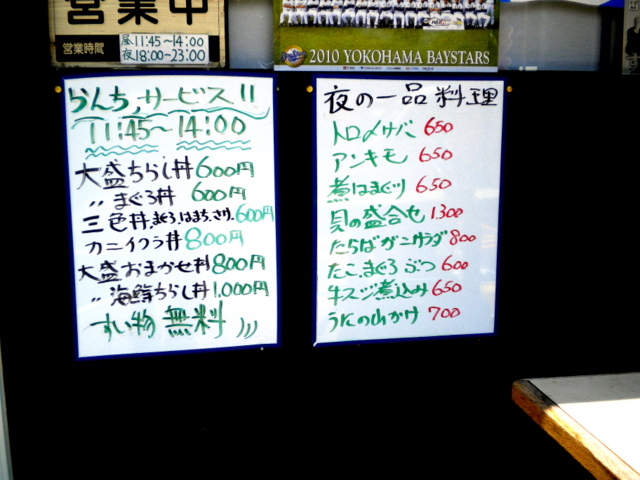 営業中
営業時間 昼11:45〜14:00
夜18:00〜23:00
2010 YOKOHAMA BAYSTARS
らんち.サービス!!
11:45〜14:00
大盛ちらし丼600円
〃まぐろ丼 600円
三色丼.まぐろ.はまち.さけ.600円
カニイクラ丼800円
大盛おまかせ丼800円
〃海鮮ちらし丼1,000円
すい物 無料
夜の一品料理
トロ〆サバ 650
アンキモ 650
煮はまぐり 650
貝の盛合せ 1300
たらばガニサラダ 800
たこ.まぐろ ぶつ 600
牛スジ煮込み 650
うにの山かけ 700